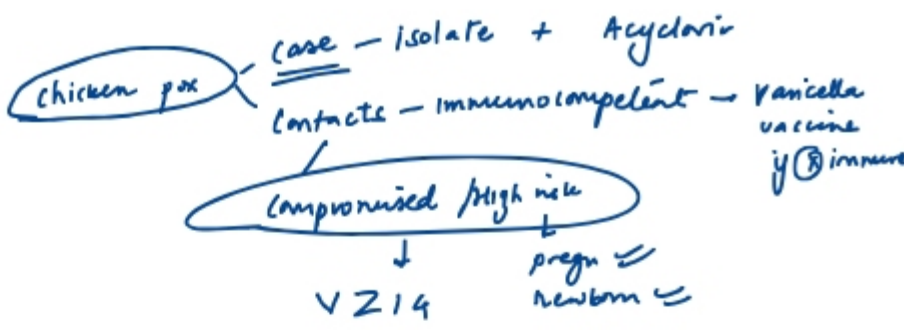 chicken pox
case - isolate + Acyclovir
Contacts - immunocompetent → Varicella
vaccine
if ⓧ immune
compromised / High risk
pregn
newborn
VZIG